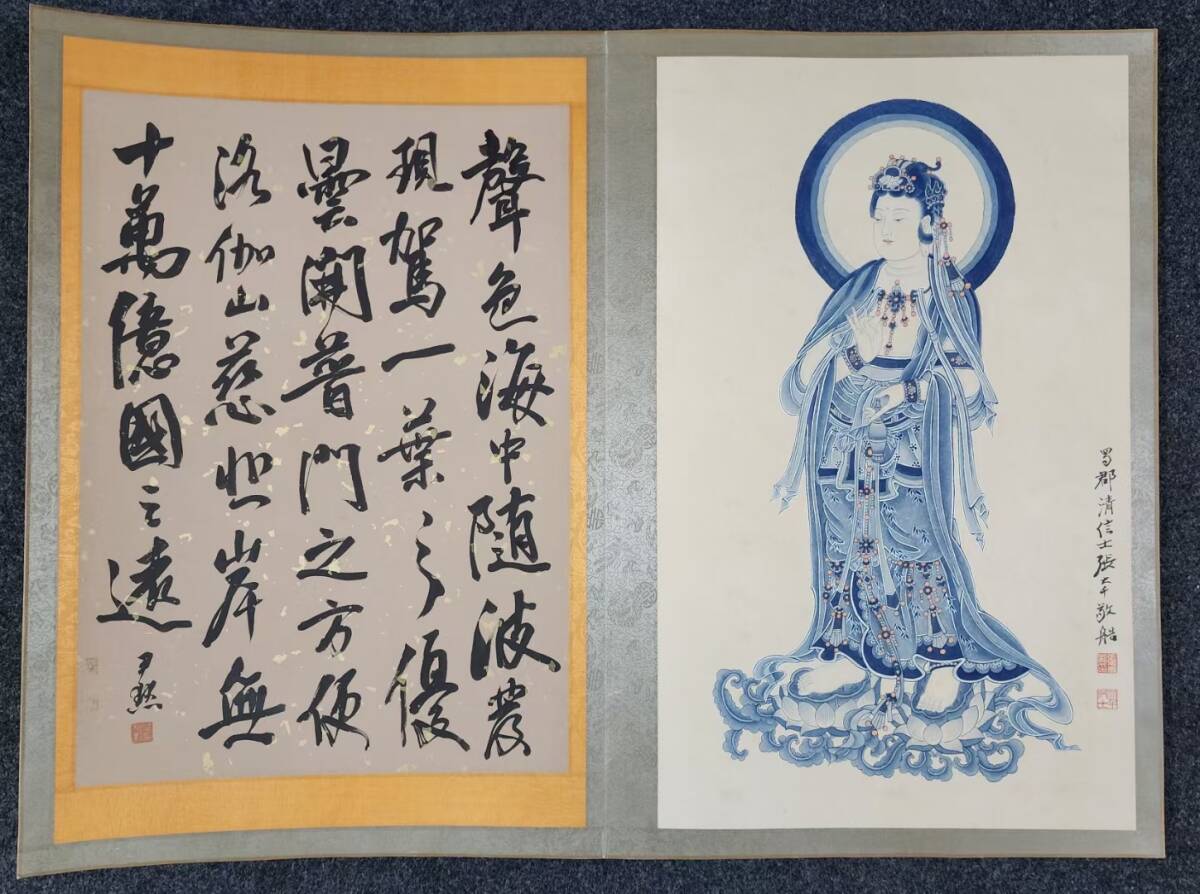 聲色海中随波
現駕一葉之優
曇開普門之方便
洛伽山慈悲岸無
十萬億國之遠
尹默
蜀郡清信士張大千敬艁